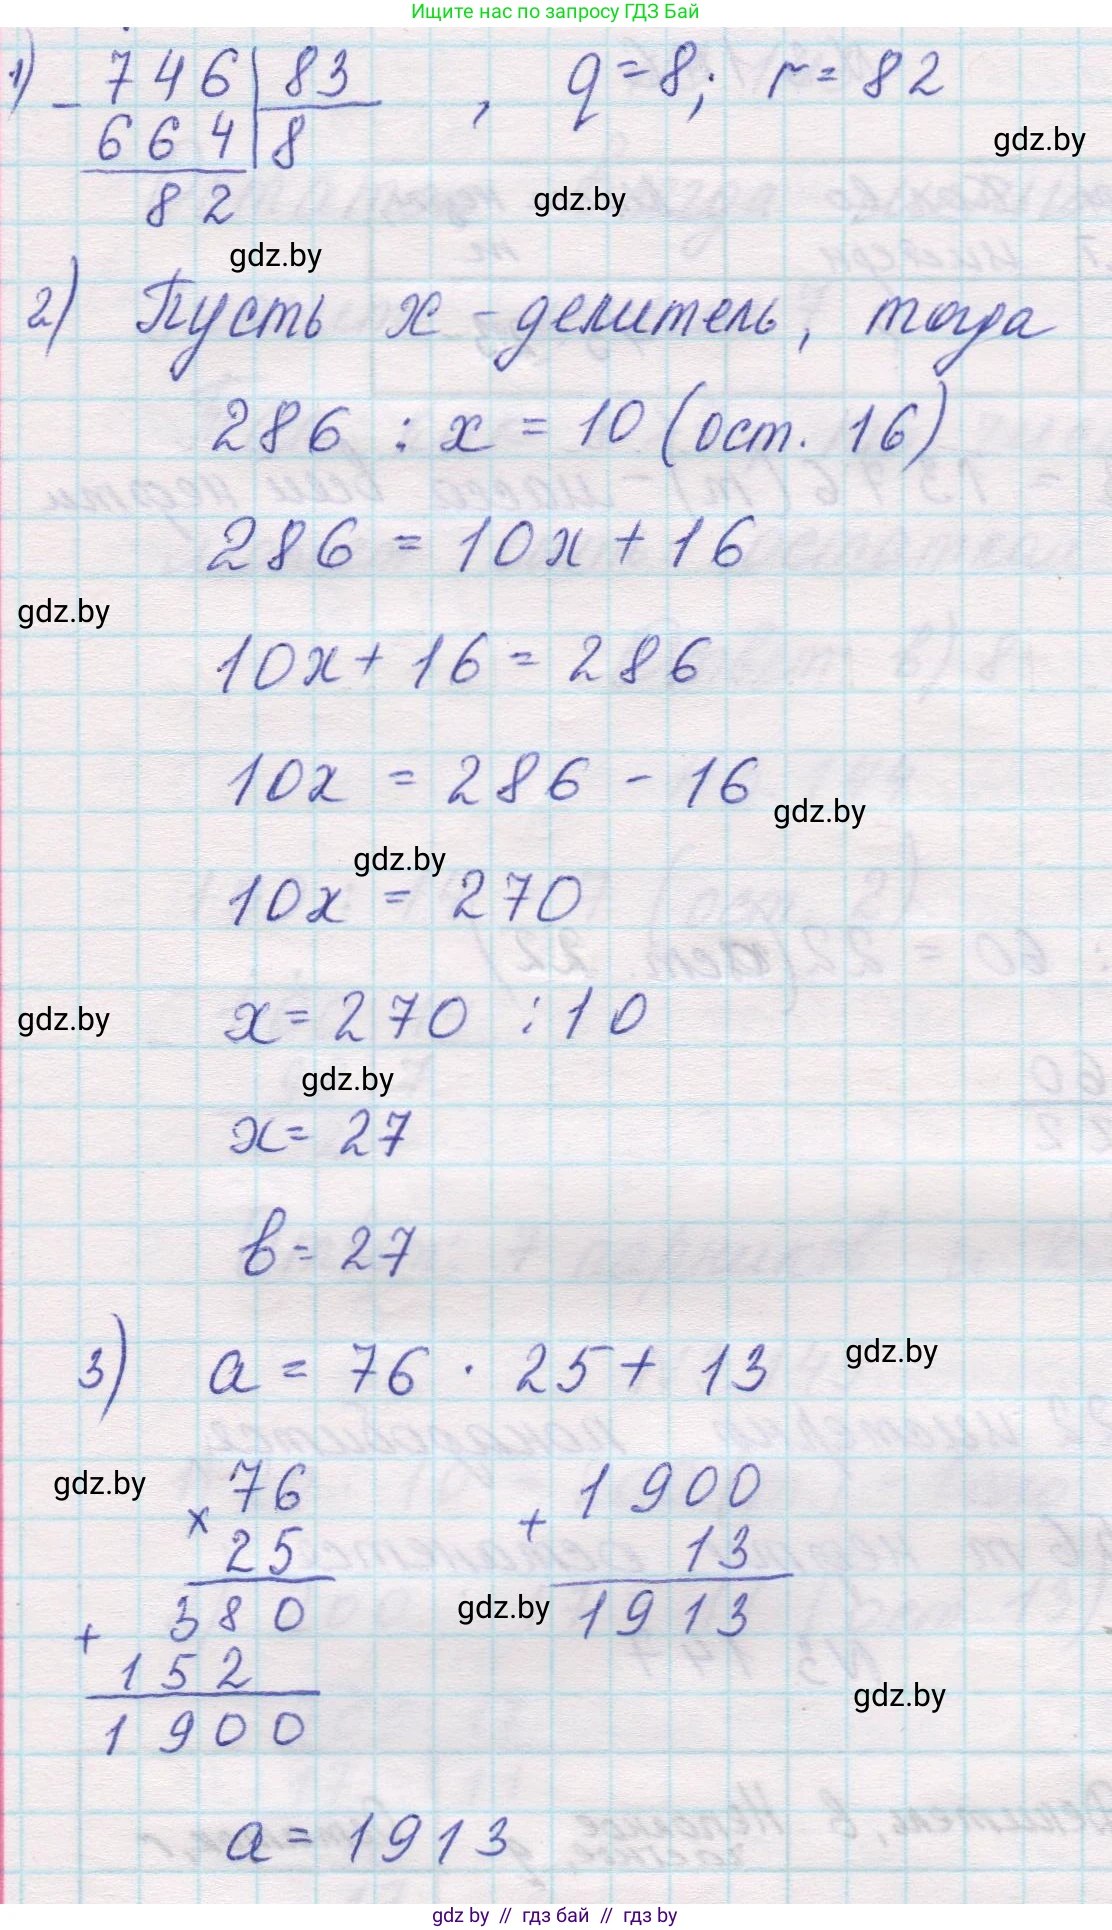 Ищите нас по запросу ГДЗ Бай
1) - 746 | 83 , q = 8; r = 82
664 | 8
gdz.by
82
gdz.by
gdz.by
2) Пусть x - делитель, тогда
286 : x = 10 (ост. 16)
286 = 10x + 16
gdz.by
10x + 16 = 286
10x = 286 - 16
gdz.by
gdz.by
10x = 270
gdz.by
x = 270 : 10
gdz.by
x = 27
b = 27
3) a = 76 · 25 + 13
gdz.by
gdz.by
76
× 25
380
+ 152
1900
1900
+ 13
1913
gdz.by
gdz.by
a = 1913
gdz.by // гдз бай // гдз by